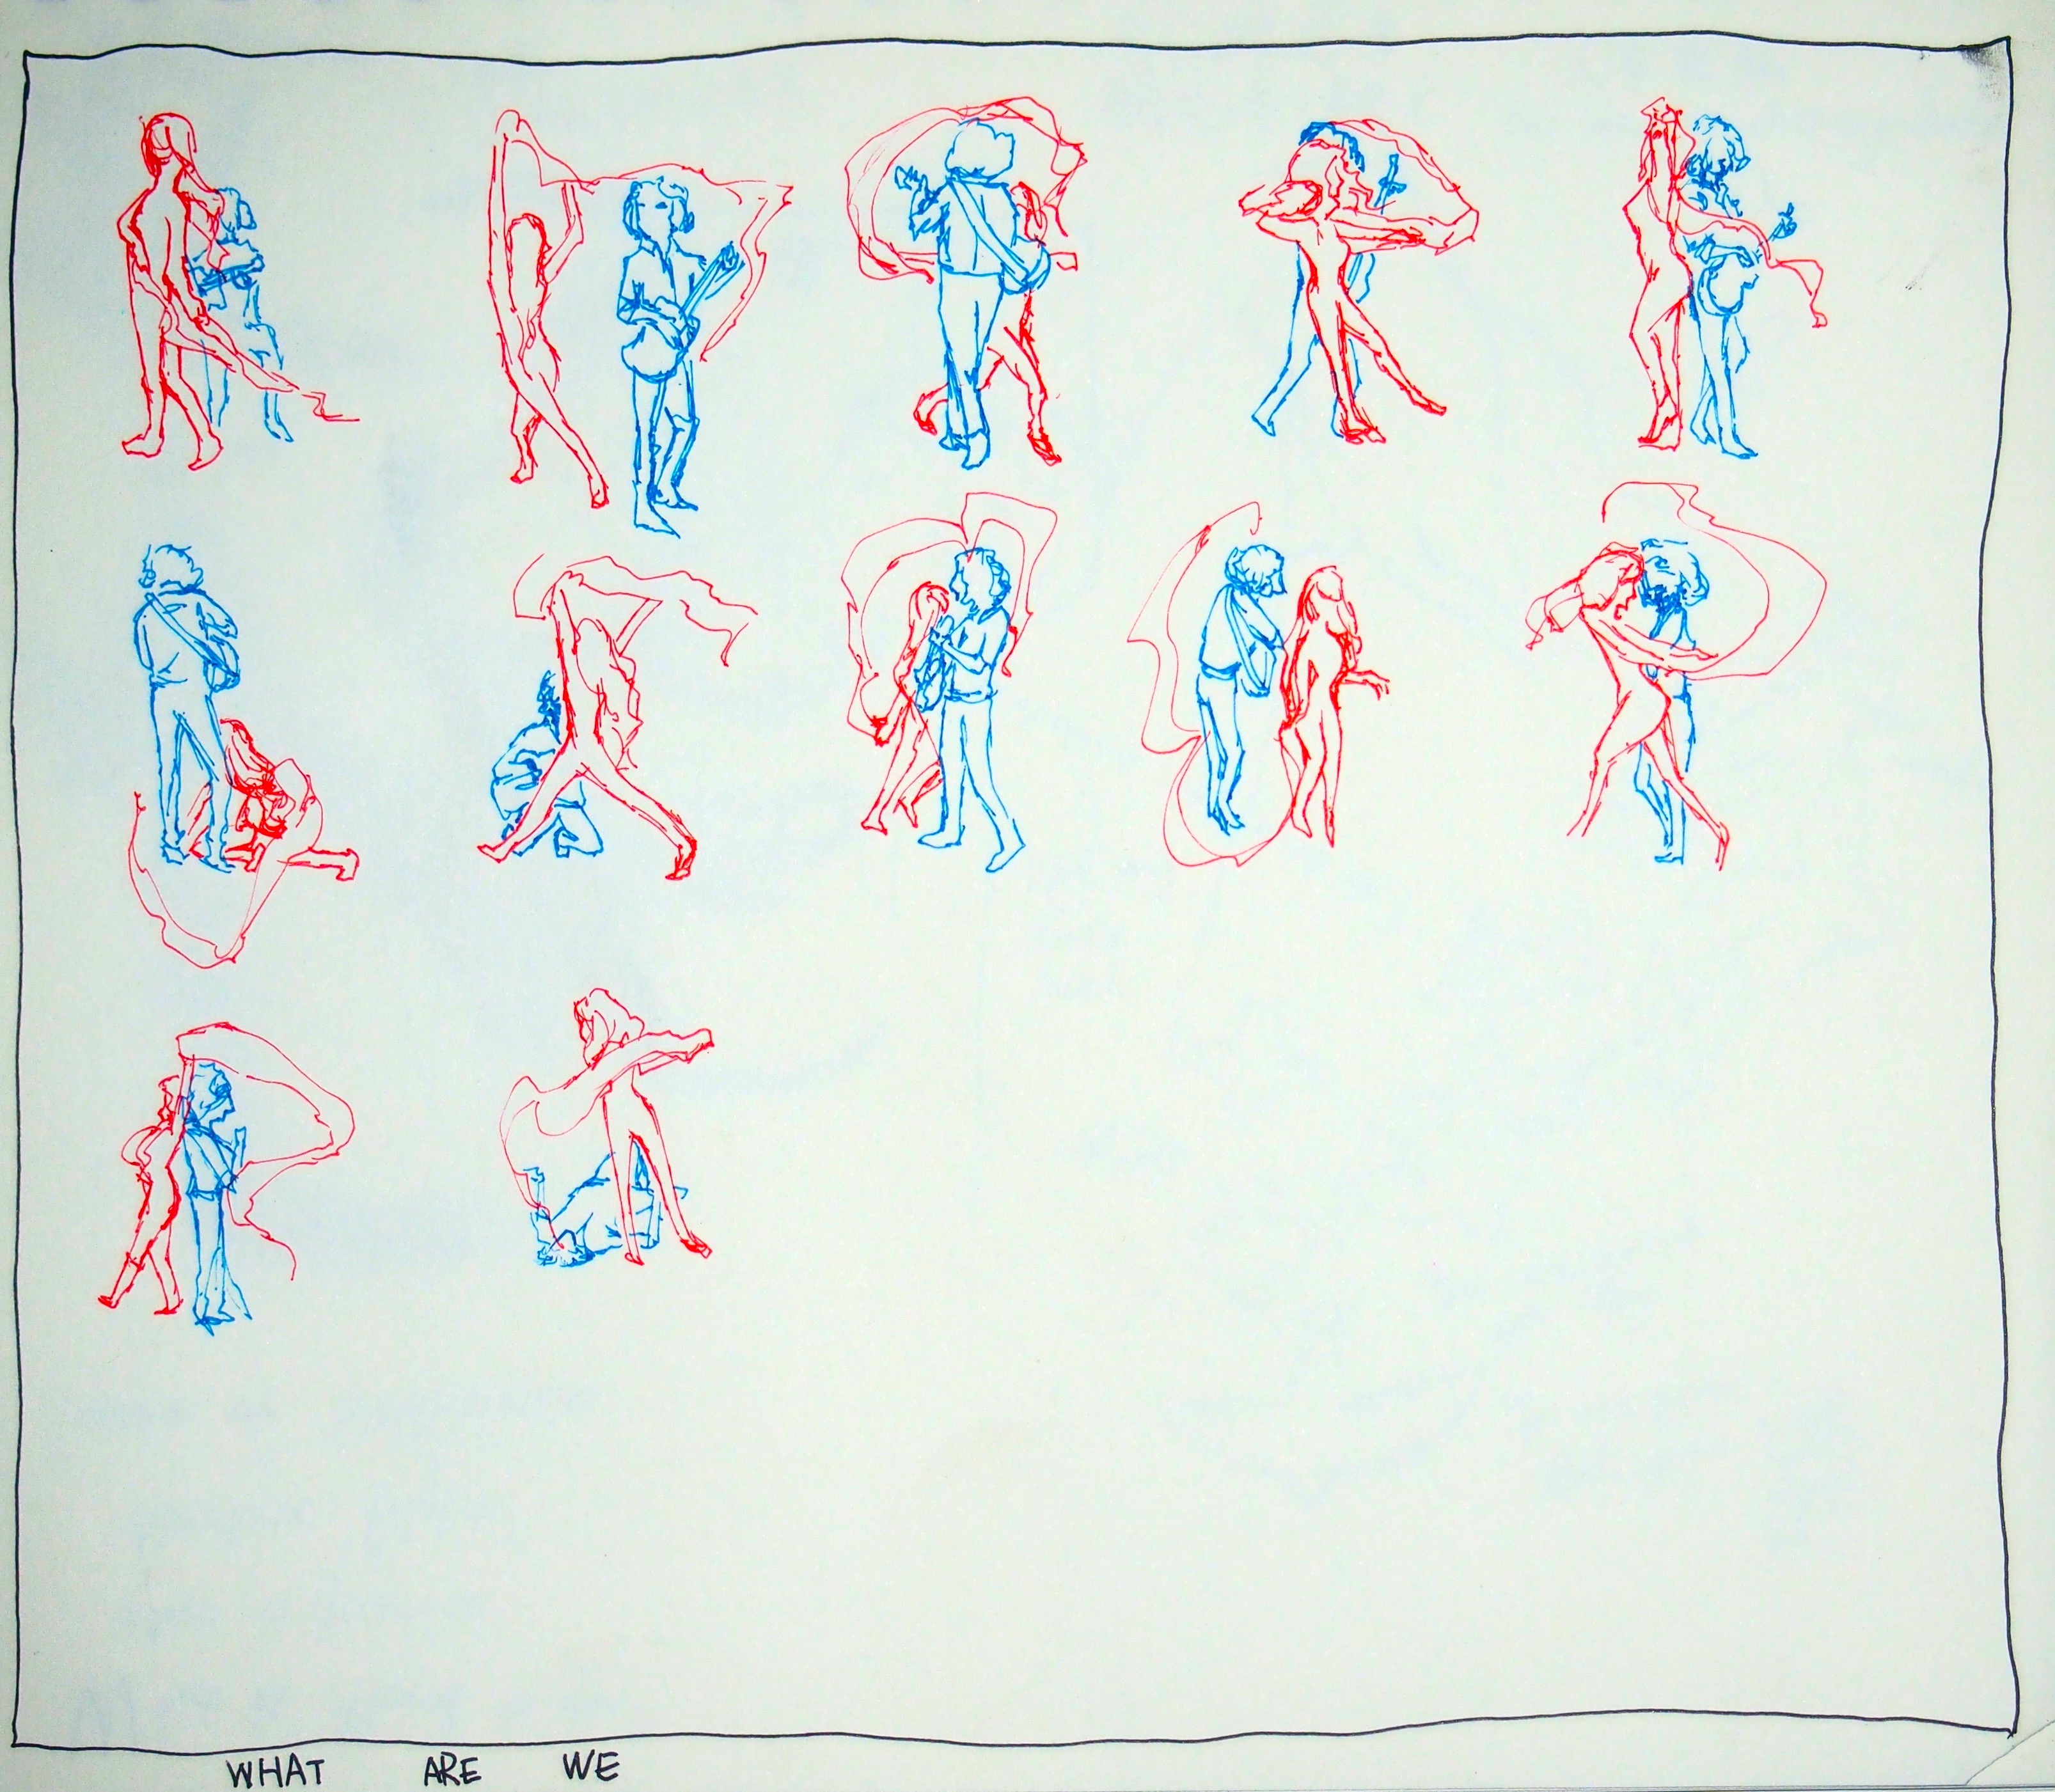 WHAT ARE WE